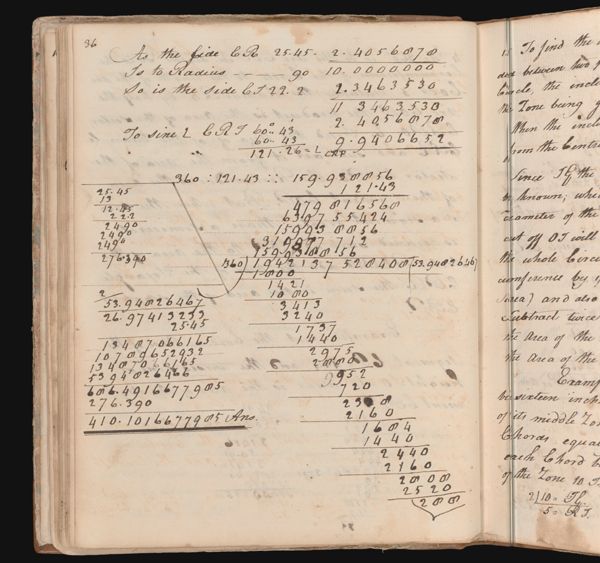 36
As the side CR 25.45. 2.4056878
Is to Radius 90 10.0000000
So is the side CT 22.2 2.3463530
11 3463530
2.4056878
To sine L CRT 60°.43' 9.9406652
60.43
121.26 = L CRP
360 : 121.43 :: 159.9388856
25.45
13
12.45
22.2
2490
2490
2490
276.390
121.43
4798166568
6397555424
1599388856
3198777712
1599388856
360)1942137528408(53.94826467
1800
1421
1080
3413
3240
1737
1440
2975
2880
952
720
2328
2160
1684
1440
2440
2160
2808
2520
288
2
53.94826467
26.97413233
25.45
13487066165
10789652932
13487066165
5394826466
686.4916677985
276.390
410.1016677985 Ans.
To find the
ded between two p
Circle, the incl
the Zone being g
When the incl
from the Centre
Since the
be known, whe
diameter of the
cut off OI will
the whole Circ
cumference by
Area) and also
Subtract twice
the Area of the
the area of the
Examp
be sixteen inch
of its middle Zon
Chords equa
each Chord b
of the Zone to I
2)10=
5=